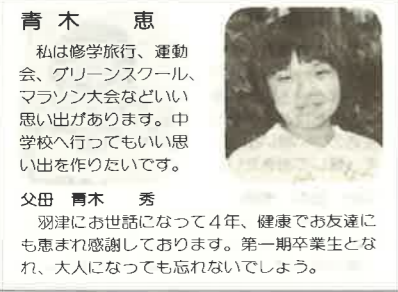 青木 恵
私は修学旅行、運動
会、グリーンスクール、
マラソン大会などいい
思い出があります。中
学校へ行ってもいい思
い出を作りたいです。
父母 青木 秀
羽津にお世話になって4年、健康でお友達に
も恵まれ感謝しております。第一期卒業生とな
れ、大人になっても忘れないでしょう。